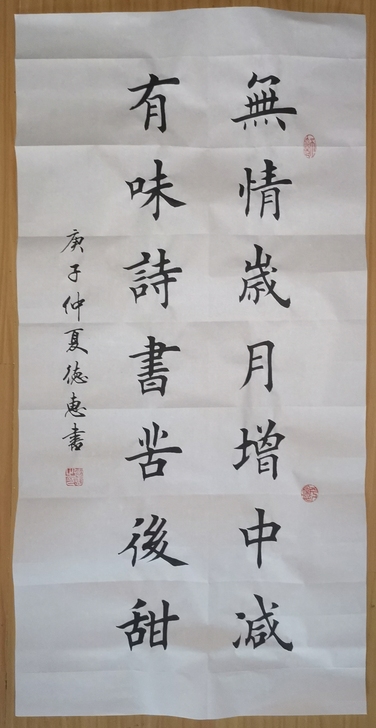 無情歲月增中減
有味詩書苦後甜
庚子仲夏德惠書